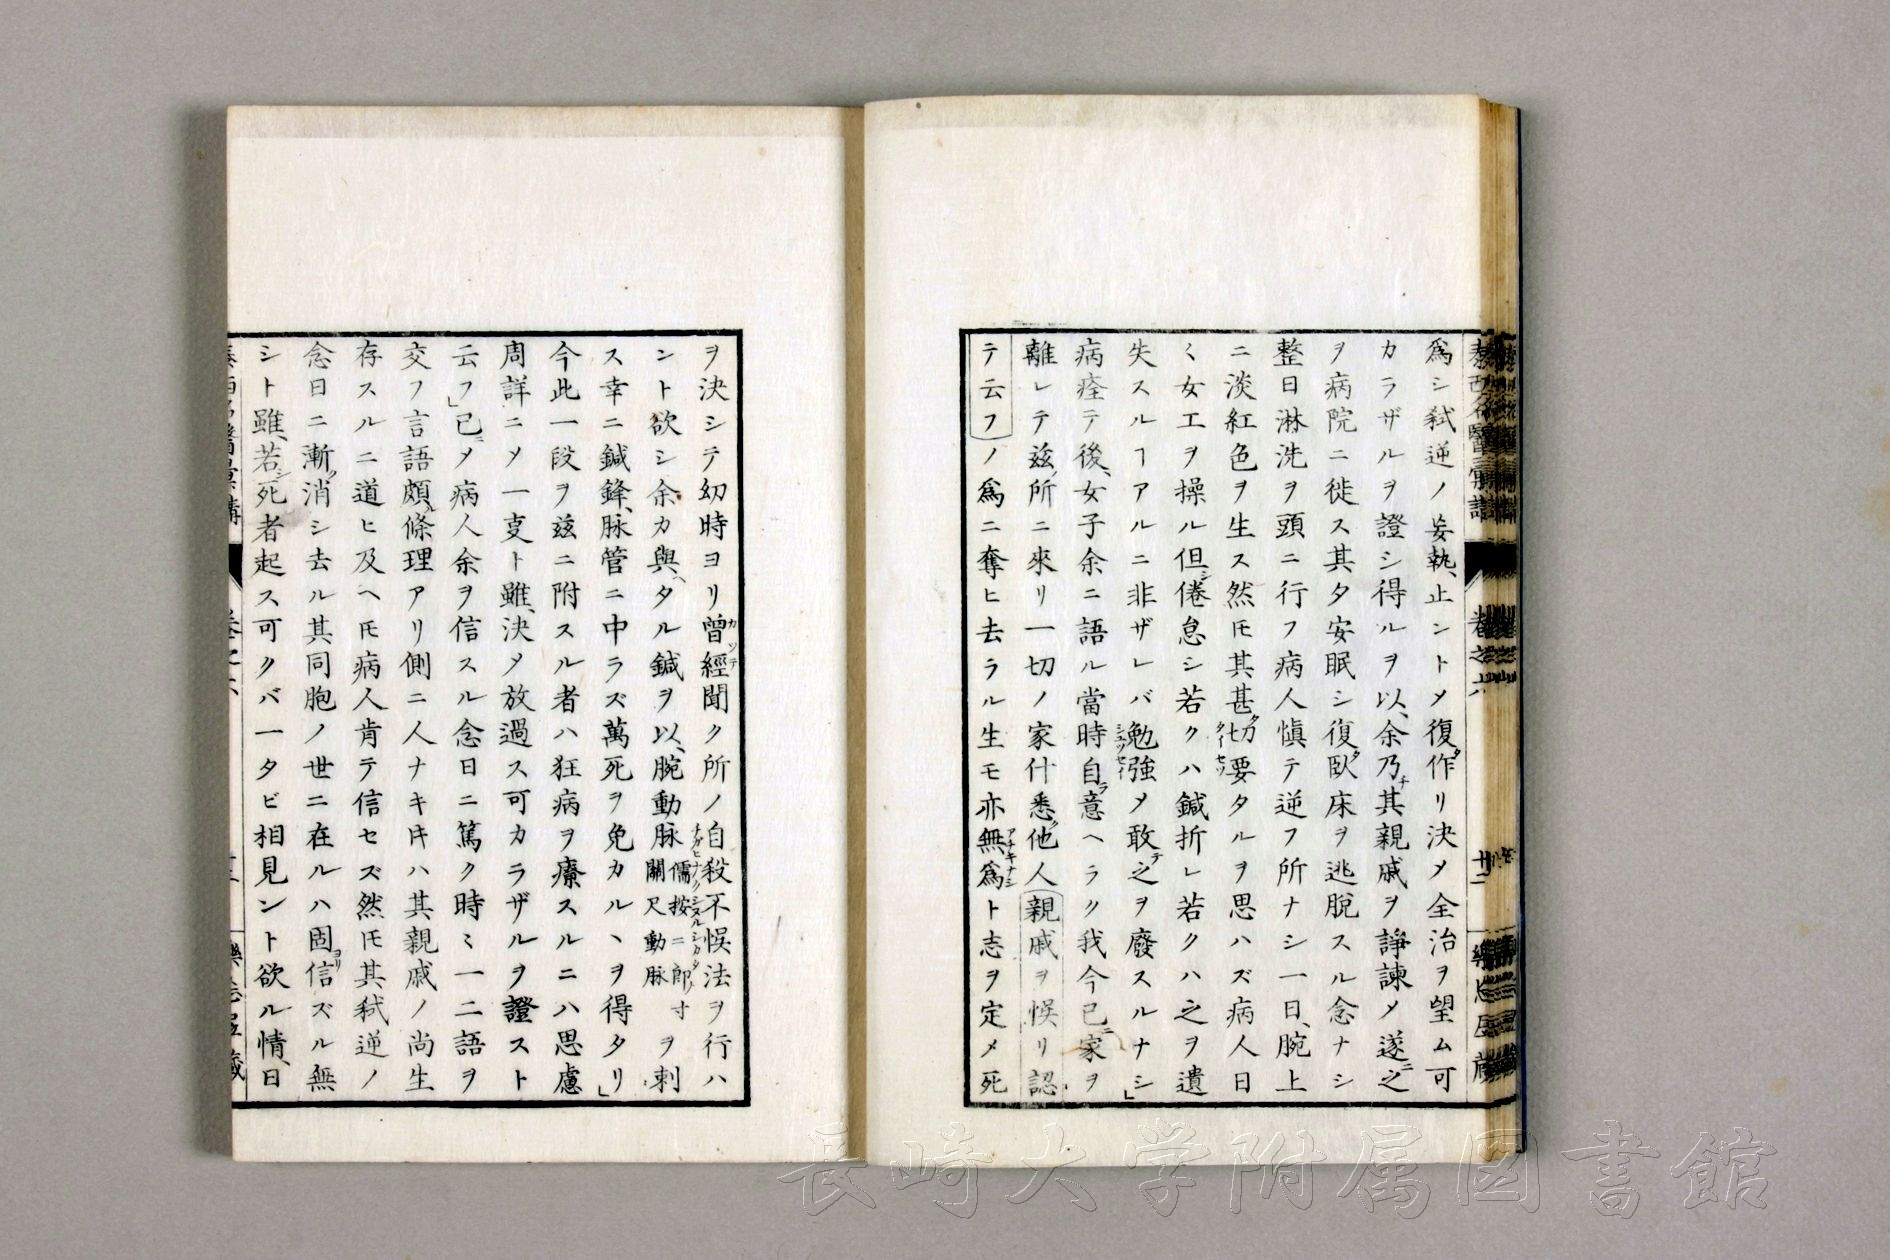 爲シ弑逆ノ妄執、止ントメ復タ作リ決メ全治ヲ望ム可
カラザルヲ證シ得ルヲ以、余乃チ其親戚ヲ諍諫メ遂ニ之
ヲ病院ニ徙ス其夕安眠シ復タ臥床ヲ逃脱スル念ナシ
整日淋洗ヲ頭ニ行フ病人愼テ逆フ所ナシ一日、腕上
ニ淡紅色ヲ生ス然𪜈其甚タ切要タルヲ思ハズ病人日
〻女工ヲ操ル但シ倦怠シ若クハ鍼折レ若クハ之ヲ遺
失スルヿアルニ非ザレバ勉強メ敢テ之ヲ廢スルナシ」
病痊テ後、女子余ニ語ル當時自ラ意ヘラク我今已ニ家ヲ
離レテ玆所ニ來リ一切ノ家什悉ク他人(親戚ヲ悞リ認
テ云フ)ノ爲ニ奪ヒ去ラル生モ亦無爲ト志ヲ定メ死
ヲ決シテ幼時ヨリ曾經聞ク所ノ自殺不悞法ヲ行ハ
ント欲シ余カ與、タル鍼ヲ以、腕動脉儒按ニ即ノ寸關尺動脉ヲ刺
ス幸ニ鍼鋒、脉管ニ中ラズ萬死ヲ免カル、ヲ得タリ」
今此一段ヲ玆ニ附スル者ハ狂病ヲ療スルニハ思慮
周詳ニメ一叓ト雖、決メ放過ス可カラザルヲ證スト
云フ」已ニメ病人余ヲ信スル念日ニ篤ク時〻一二語ヲ
交フ言語頗ル條理アリ側ニ人ナキ𪜈ハ其親戚ノ尚生
存スルニ道ヒ及ヘ𪜈病人肯テ信セズ然𪜈其弑逆ノ
念日ニ漸ク消シ去ル其同胞ノ世ニ在ルハ固ヨリ信ズル無
シト雖、若シ死者起ス可クバ一タビ相見ント欲ル情、日
泰西名醫彙講
卷之六
十二
長崎大学附属図書館